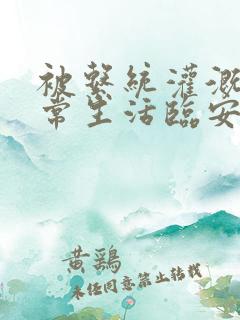 被繫統灌溉
常生活臨安
黃鷄
未經同意禁止轉載